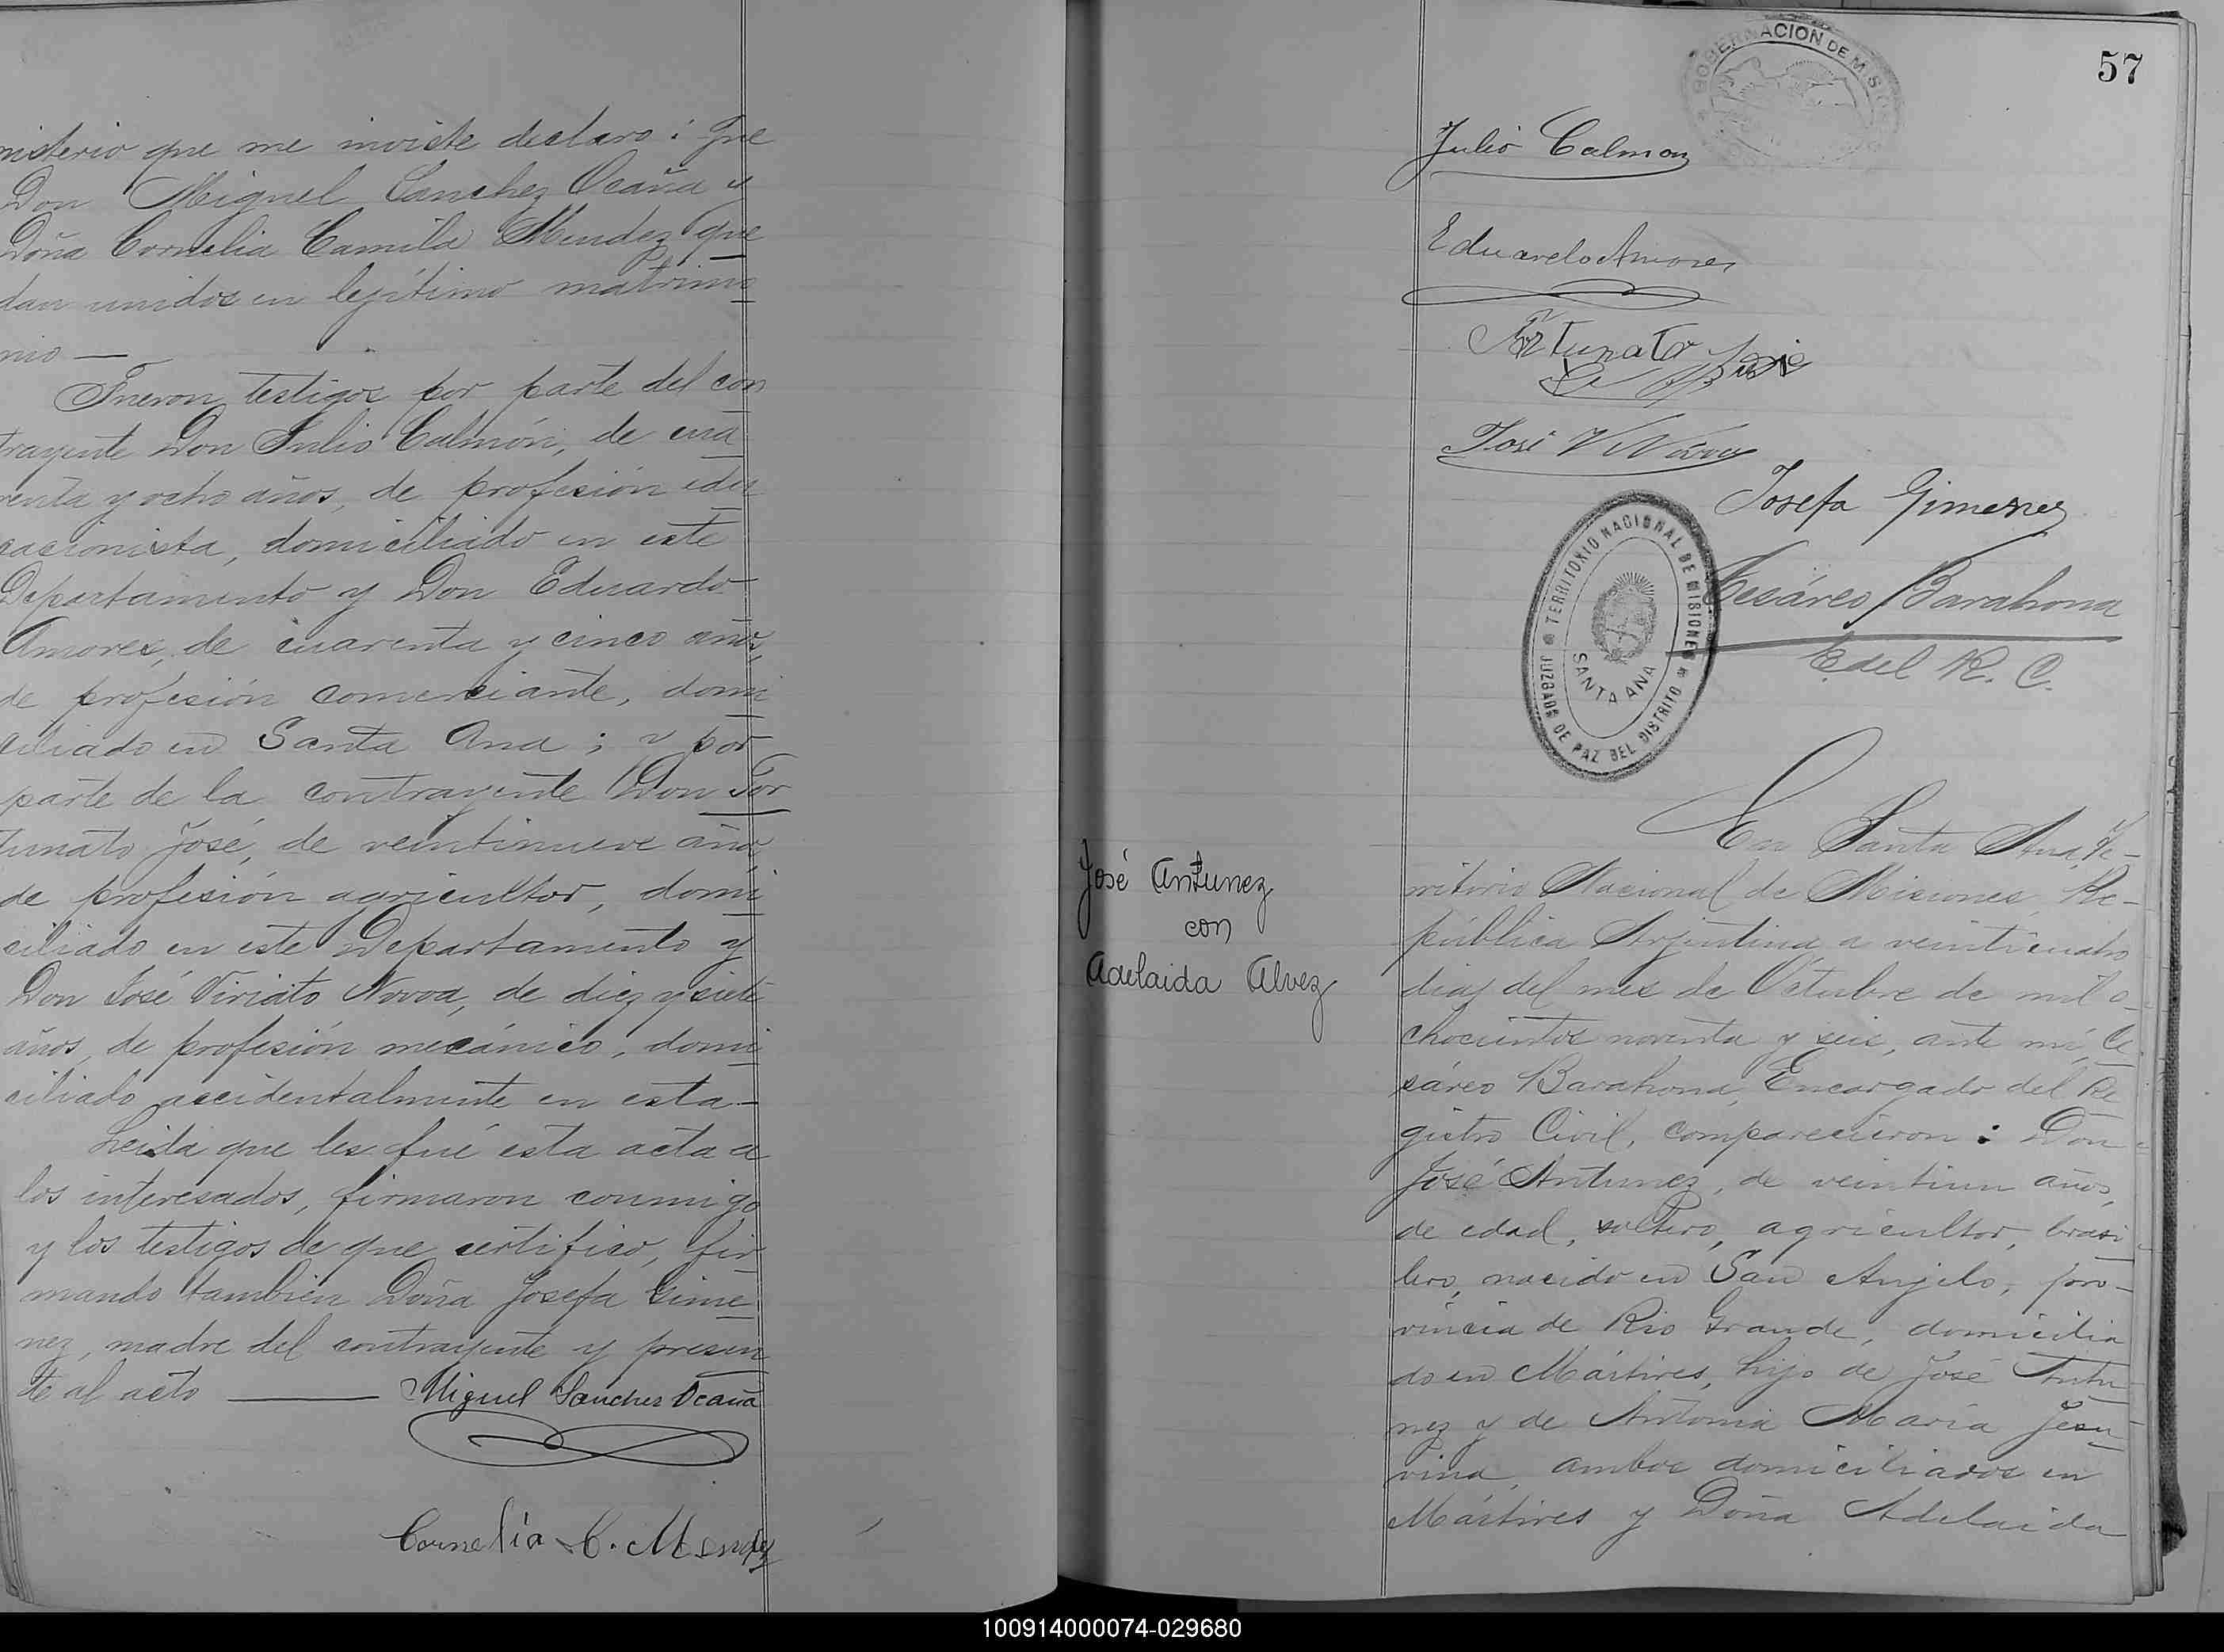 nisterio que me inviste declaro: Que
Don Miguel Sanchez Ocaña y
Doña Cornelia Camila Mendez que
dan unidos en legítimo matrimo
nio —
Fueron testigos por parte del con
trayente Don Julio Calmón, de cua
renta y ocho años, de profesión edu
cacionista, domiciliado en este
Departamento y Don Eduardo
Amores, de cuarenta y cinco años,
de profesión comerciante, domi
ciliado en Santa Ana; y por
parte de la contrayente Don For
tunato José, de veintinueve años,
de profesión agricultor, domi
ciliado en este Departamento y
Don José Viriato Novoa, de diez y siete
años, de profesión mecánico, domi
ciliado accidentalmente en esta—
Leida que les fué esta acta a
los interesados, firmaron conmigo
y los testigos de que certifico, fir
mando también Doña Josefa Gime
nez, madre del contrayente y presen
te al acto —
Miguel Sanchez Ocaña
Cornelia C. Mendez
57
GOBERNACION DE MISIONES
Julio Calmon
Eduardo Amores
Fortunato José
José V Novoa
Josefa Gimenez
TERRITORIO NACIONAL DE MISIONES
SANTA ANA
JUZGADO DE PAZ DEL DISTRITO
Cesáreo Barahona
E. del R. C.
José Antunez
con
Adelaida Alvez
En Santa Ana, Te-
rritorio Nacional de Misiones, Re-
pública Argentina a veinticuatro
dias del mes de Octubre de mil o-
chocientos noventa y seis, ante mí, Ce
sáreo Barahona, Encargado del Re
gistro Civil, comparecieron: Don
José Antunez, de veintiun años,
de edad, soltero, agricultor, brasi
lero, nacido en San Angelo, pro-
vincia de Rio Grande, domicilia
do en Mártires, hijo de José Antu
nez y de Antonia María Jesu
vina, ambos domiciliados en
Mártires y Doña Adelaida
100914000074-029680